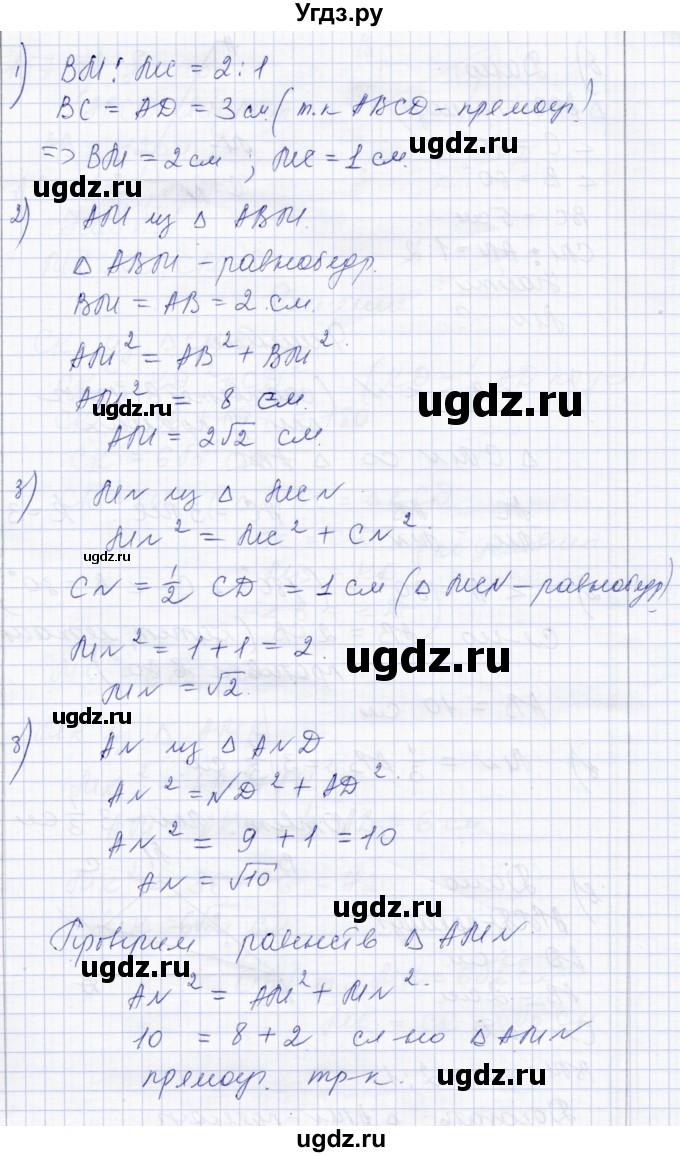 Угдз.ру
1) BM : MC = 2 : 1
BC = AD = 3 см (т.к ABCD - прямоуг.)
=> BM = 2 см ; MC = 1 см.
ugdz.ru
ugdz.ru
2) AM из △ ABM.
△ ABM - равнобедр.
BM = AB = 2 см.
AM² = AB² + BM².
AM² = 8 см.
ugdz.ru
ugdz.ru
AM = 2√2 см.
3) MN из △ MCN.
MN² = MC² + CN².
ugdz.ru
CN = 1/2 CD = 1 см (△ MCN - равнобедр.)
MN² = 1 + 1 = 2.
ugdz.ru
MN = √2.
ugdz.ru
3) AN из △ AND
AN² = ND² + AD².
AN² = 9 + 1 = 10
AN = √10
ugdz.ru
Проверим равенств △ AMN.
ugdz.ru
AN² = AM² + MN².
10 = 8 + 2 сл-но △ AMN
прямоуг. тр-к.
ugdz.ru
ugdz.ru